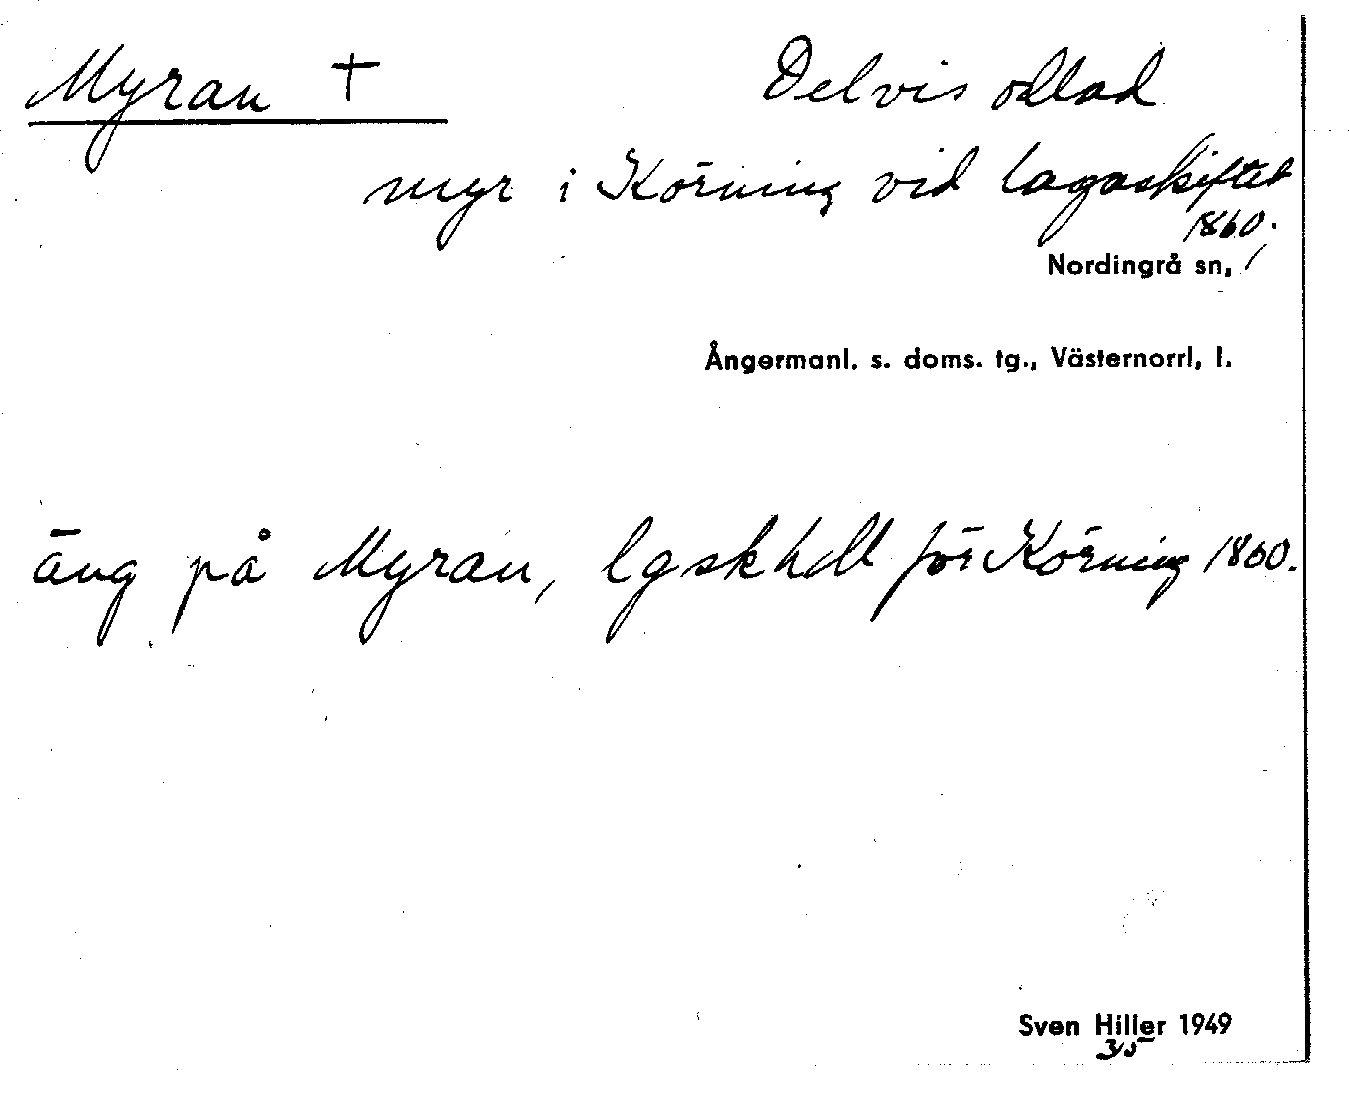 Myran † Delvis odlad
myr i Körning vid lagaskiftet
1860.
Nordingrå sn,
Ångermanl. s. doms. tg., Västernorrl, l.
äng på Myran, lgskhdl för Körning 1860.
Sven Hiller 1949
3/5